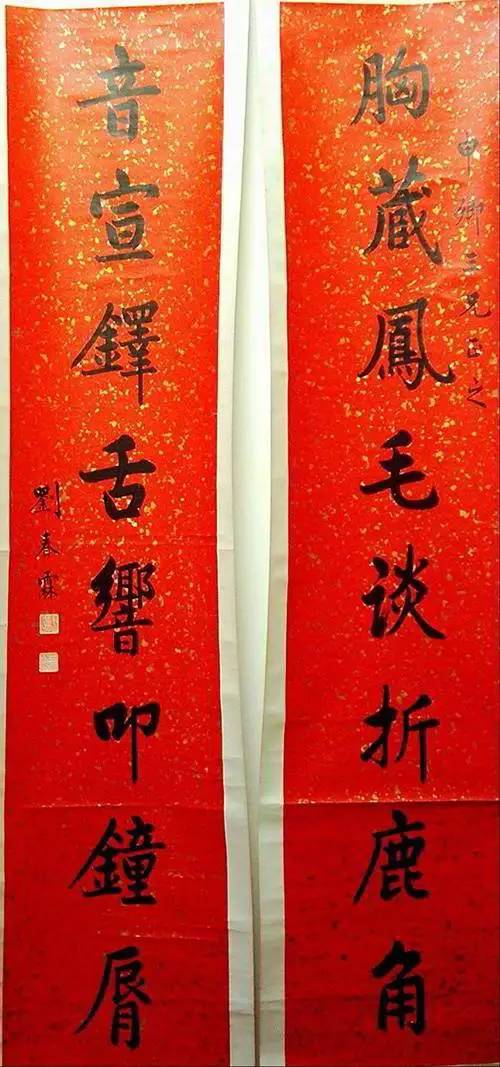 胸藏鳳毛談折鹿角
申卿三兄正之
音宣鐸舌響叩鐘脣
劉春霖